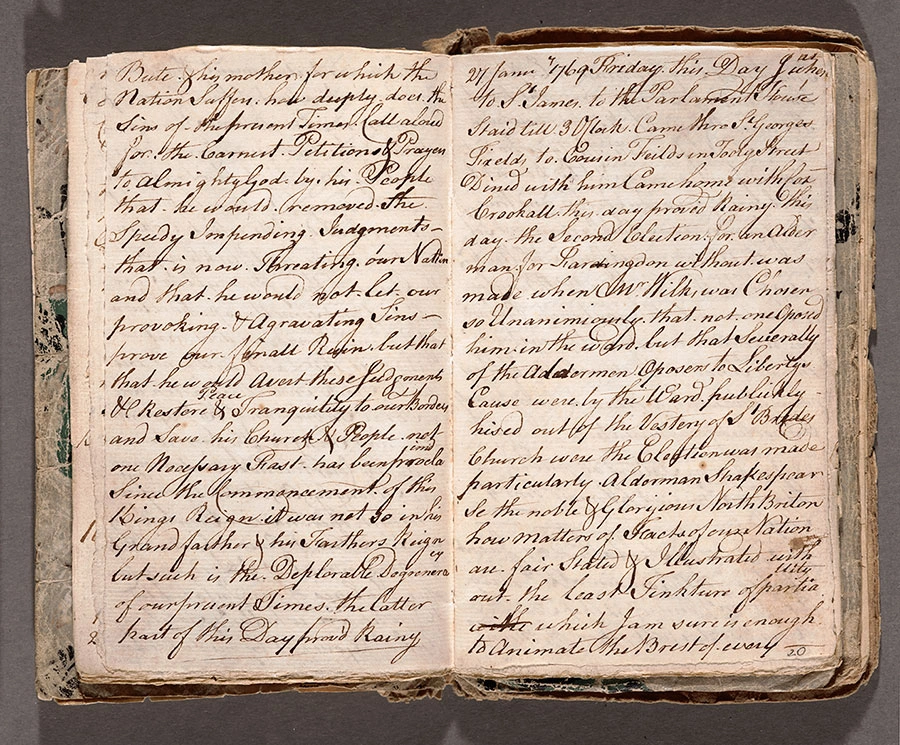 Bute & his mother for which the
Nation Suffers how deeply does the
Sins of the present Times Call aloud
for the Earnest Petitions & Prayers
to Almighty God by his People
that he would removed the
Speedy Impending Judgments
that is now Threating our Nation
and that he would not let our
provoking & Agravating Sins
prove our Ruin but that
that he would Avert these Judgments
& Restore Peace & Tranquility to our Borders
and Save his Church & People not
one Necessary Fast has been proclaimd
Since the Commencement of this
Kings Reign it was not so in his
Grandfather & his Farthers Reign
but such is the Deplorable Degeneracy
of our present Times the latter
part of this Day proud Rainy
27 Janu 1769 Friday this Day I when
to St James to the Parlament House
Staid till 3 O'Clock Came thro St Georges
Fields to Cousin Feilds in Tooly Street
Dined with him Came home with
Crookall this day proved Rainy this
day the Second Election for an Alder
man for Farringdon without was
made when Mr Wilks was Chosen
so Unanimiously that not one Oposed
him in the ward but that Severally
of the Aldermen Oposers to Libertys
Cause were by the Ward publickly
hised out of the Vestery of St Brides
Church were the Election was made
particularly Alderman Shakespear
Se the noble & Gloryious North Briton
how matters of Facts of our Nation
are fair Stated & Illustrated with
out the least Tinkture of partiality
which I am sure is enough
to Animate the Brest of every
20